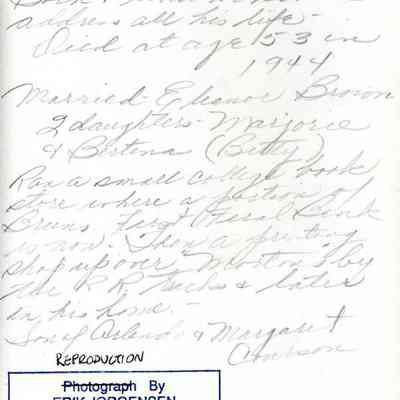 address all his life -
Died at age 53 in
1944
Married Eleanor Brown
2 daughters - Marjorie
& Bertena (Betty)
Ran a small college book
store where a portion of
First Bank
is now. Then a printing
shop up over Morton's by
the R R tracks & later
in his home. -
Son of Orlando & Margaret
REPRODUCTION
Photograph By
ERIK JORGENSEN